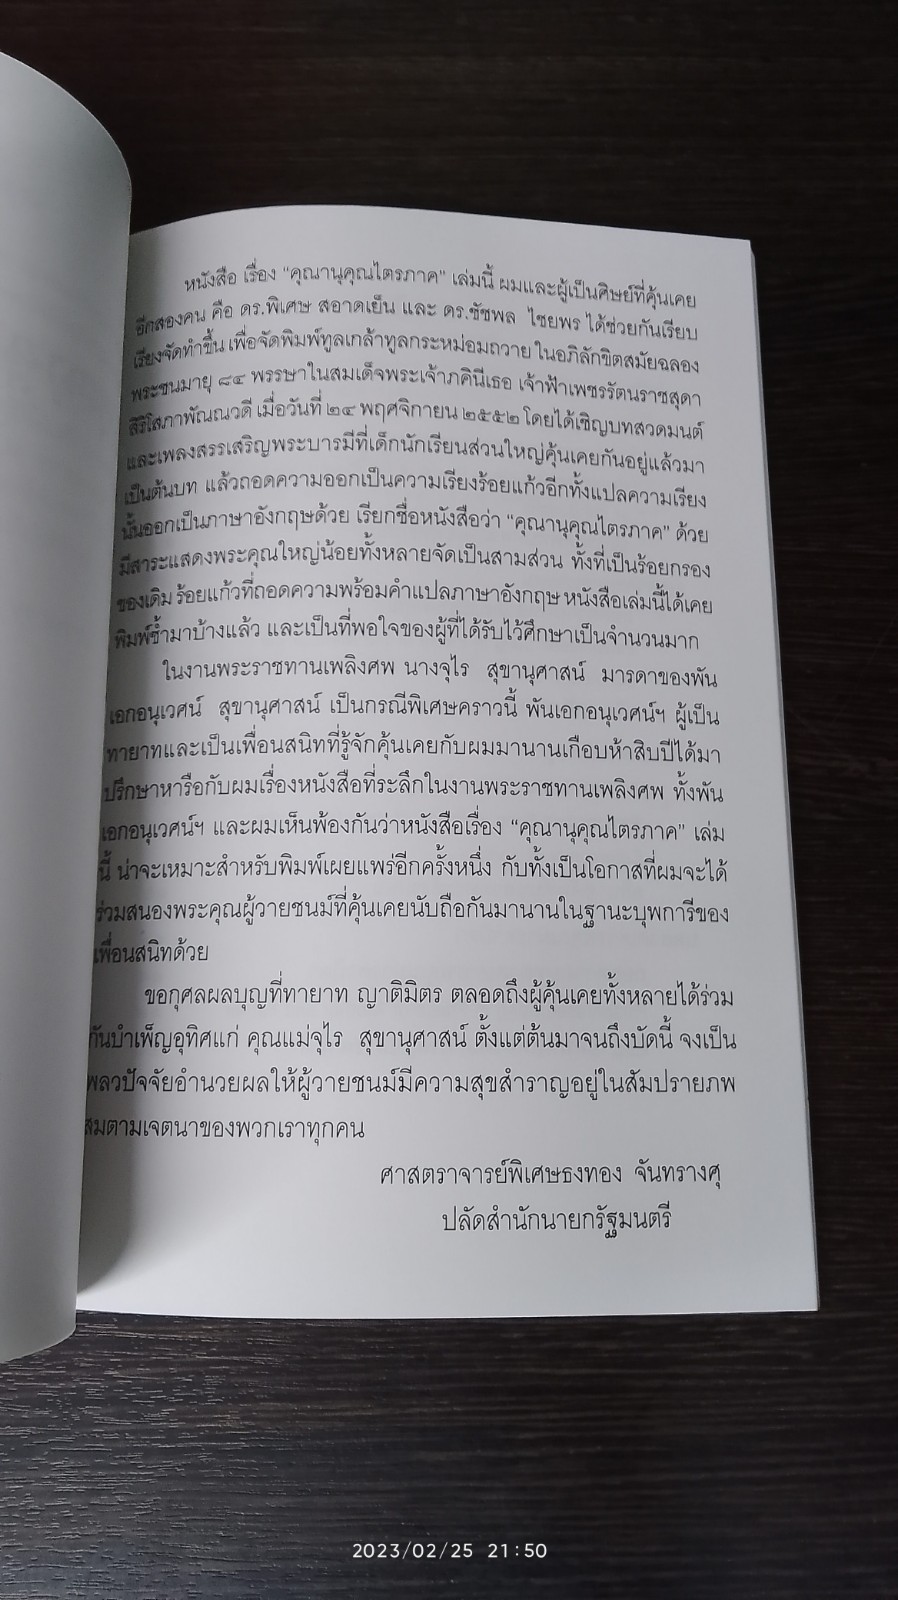 หนังสือ เรื่อง “คุณานุคุณไตรภาค” เล่มนี้ ผมและผู้เป็นศิษย์ที่คุ้นเคย
อีกสองคน คือ ดร.พิเศษ สอาดเย็น และ ดร.ชัชพล ไชยพร ได้ช่วยกันเรียบ
เรียงจัดทำขึ้น เพื่อจัดพิมพ์ทูลเกล้าทูลกระหม่อมถวาย ในอภิลักขิตสมัยฉลอง
พระชนมายุ ๘๔ พรรษาในสมเด็จพระเจ้าภคินีเธอ เจ้าฟ้าเพชรรัตนราชสุดา
สิริโสภาพัณณวดี เมื่อวันที่ ๒๔ พฤศจิกายน ๒๕๕๒ โดยได้เชิญบทสวดมนต์
และเพลงสรรเสริญพระบารมีที่เด็กนักเรียนส่วนใหญ่คุ้นเคยกันอยู่แล้วมา
เป็นต้นบท แล้วถอดความออกเป็นความเรียงร้อยแก้วอีกทั้งแปลความเรียง
นั้นออกเป็นภาษาอังกฤษด้วย เรียกชื่อหนังสือว่า “คุณานุคุณไตรภาค” ด้วย
มีสาระแสดงพระคุณใหญ่น้อยทั้งหลายจัดเป็นสามส่วน ทั้งที่เป็นร้อยกรอง
ของเดิม ร้อยแก้วที่ถอดความพร้อมคำแปลภาษาอังกฤษ หนังสือเล่มนี้ได้เคย
พิมพ์ซ้ำมาบ้างแล้ว และเป็นที่พอใจของผู้ที่ได้รับไว้ศึกษาเป็นจำนวนมาก
ในงานพระราชทานเพลิงศพ นางจุไร สุขานุศาสน์ มารดาของพัน
เอกอนุเวศน์ สุขานุศาสน์ เป็นกรณีพิเศษคราวนี้ พันเอกอนุเวศน์ฯ ผู้เป็น
ทายาทและเป็นเพื่อนสนิทที่รู้จักคุ้นเคยกับผมมานานเกือบห้าสิบปีได้มา
ปรึกษาหารือกับผมเรื่องหนังสือที่ระลึกในงานพระราชทานเพลิงศพ ทั้งพัน
เอกอนุเวศน์ฯ และผมเห็นพ้องกันว่าหนังสือเรื่อง “คุณานุคุณไตรภาค” เล่ม
นี้ น่าจะเหมาะสำหรับพิมพ์เผยแพร่อีกครั้งหนึ่ง กับทั้งเป็นโอกาสที่ผมจะได้
ร่วมสนองพระคุณผู้วายชนม์ที่คุ้นเคยนับถือกันมานานในฐานะบุพการีของ
เพื่อนสนิทด้วย
ขอกุศลผลบุญที่ทายาท ญาติมิตร ตลอดถึงผู้คุ้นเคยทั้งหลายได้ร่วม
กันบำเพ็ญอุทิศแก่ คุณแม่จุไร สุขานุศาสน์ ตั้งแต่ต้นมาจนถึงบัดนี้ จงเป็น
พลวปัจจัยอำนวยผลให้ผู้วายชนม์มีความสุขสำราญอยู่ในสัมปรายภพ
สมตามเจตนาของพวกเราทุกคน
ศาสตราจารย์พิเศษธงทอง จันทรางศุ
ปลัดสำนักนายกรัฐมนตรี
2023/02/25 21:50